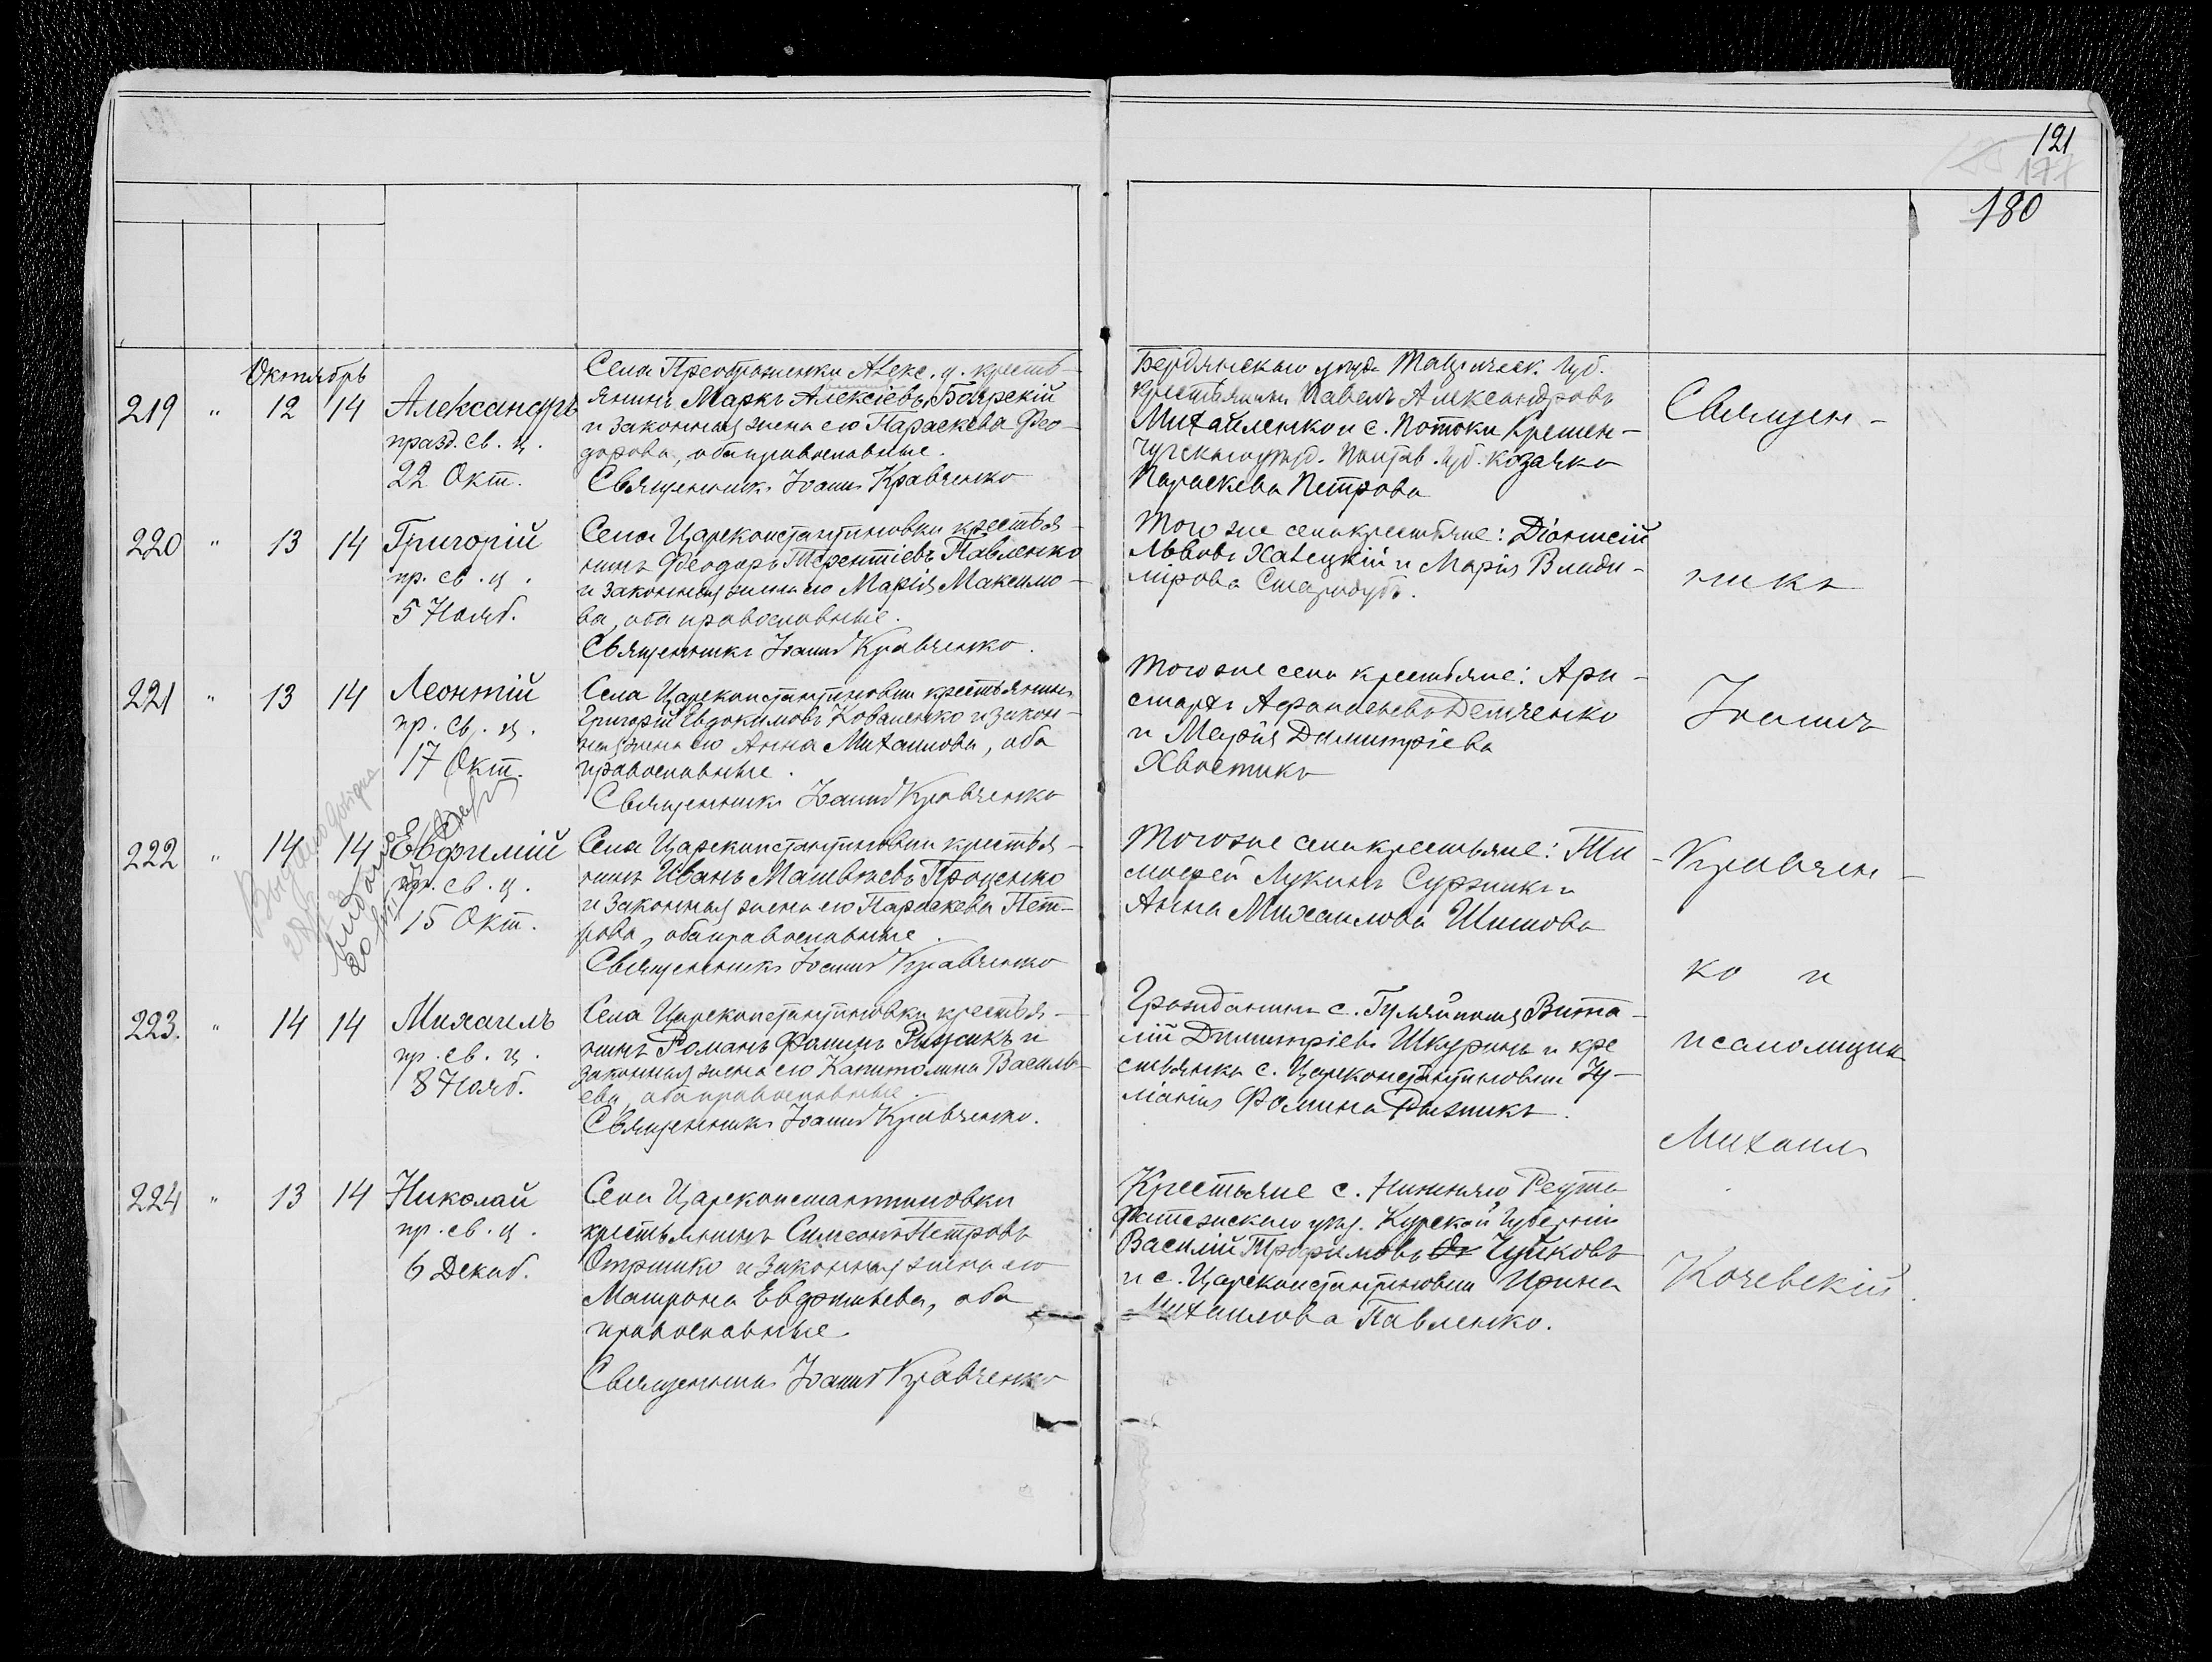 121
180
Октябрь
219 " 12 14 Александръ
празд. св. ц.
22 Окт.
Села Преображенки Алекс. у. кресть-
янинъ Маркъ Алексіевъ Боярскій
и законная жена его Параскева Фео-
дорова, оба православные.
Священникъ Іоаннъ Кравченко
Бердянскаго уезда Таврическ. губ.
крестьянинъ Павелъ Александровъ
Михайленко и с. Потоки Кремен-
чугскаго уезд. Полтав. губ. козачка
Параскева Петрова
220 " 13 14 Григорій
пр. св. ц.
5 Нояб.
Села Цареконстантиновки крестья-
нинъ Феодоръ Терентіевъ Павленко
и законная жена его Марія Максимо-
ва, оба православные.
Священникъ Іоаннъ Кравченко.
Того же села крестьяне: Діонисій
Львовъ Халецкій и Марія Влади-
мірова Стародубъ.
221 " 13 14 Леонтій
пр. св. ц.
17 Окт.
Села Цареконстантиновки крестьянинъ
Григорій Евдокимовъ Коваленко и закон-
ная жена его Анна Михаилова, оба
православные.
Священникъ Іоаннъ Кравченко
Того же села крестьяне: Ари-
стархъ Афанасьевъ Демченко
и Марія Димитріева
Хвостикъ
222 " 14 14 Евфимій
пр. св. ц.
15 Окт.
Села Цареконстантиновки крестья-
нинъ Иванъ Матвѣевъ Проценко
и законная жена его Параскева Пет-
рова, оба православные.
Священникъ Іоаннъ Кравченко
Того же села крестьяне: Ти-
мофей Лукинъ Суржикъ и
Анна Михаилова Шишова
223. " 14 14 Михаилъ
пр. св. ц.
8 Нояб.
Села Цареконстантиновки крестья-
нинъ Романъ Фоминъ Рызникъ и
законная жена его Капитолина Василь-
ева, оба православные.
Священникъ Іоаннъ Кравченко.
Гражданинъ с. Гуляйполя Вита-
лій Димитріевъ Шкуринъ и кре
стьянка с. Цареконстантиновки Іу-
ліанія Фомина Рызникъ.
224 " 13 14 Николай
пр. св. ц.
6 Декаб.
Села Цареконстантиновки
крестьянинъ Симеонъ Петровъ
Отришко и законная жена его
Матрона Евфимьева, оба
православные
Священникъ Іоаннъ Кравченко
Крестьяне с. Нижняго Реута
Фатежскаго уезд. Курской Губерніи
Василій Трофимовъ Чуйковъ
и с. Цареконстантиновки Ирина
Михаилова Павленко.
Священ-
никъ
Іоаннъ
Кравчен-
ко и
псаломщикъ
Михаилъ
Кочевскій.